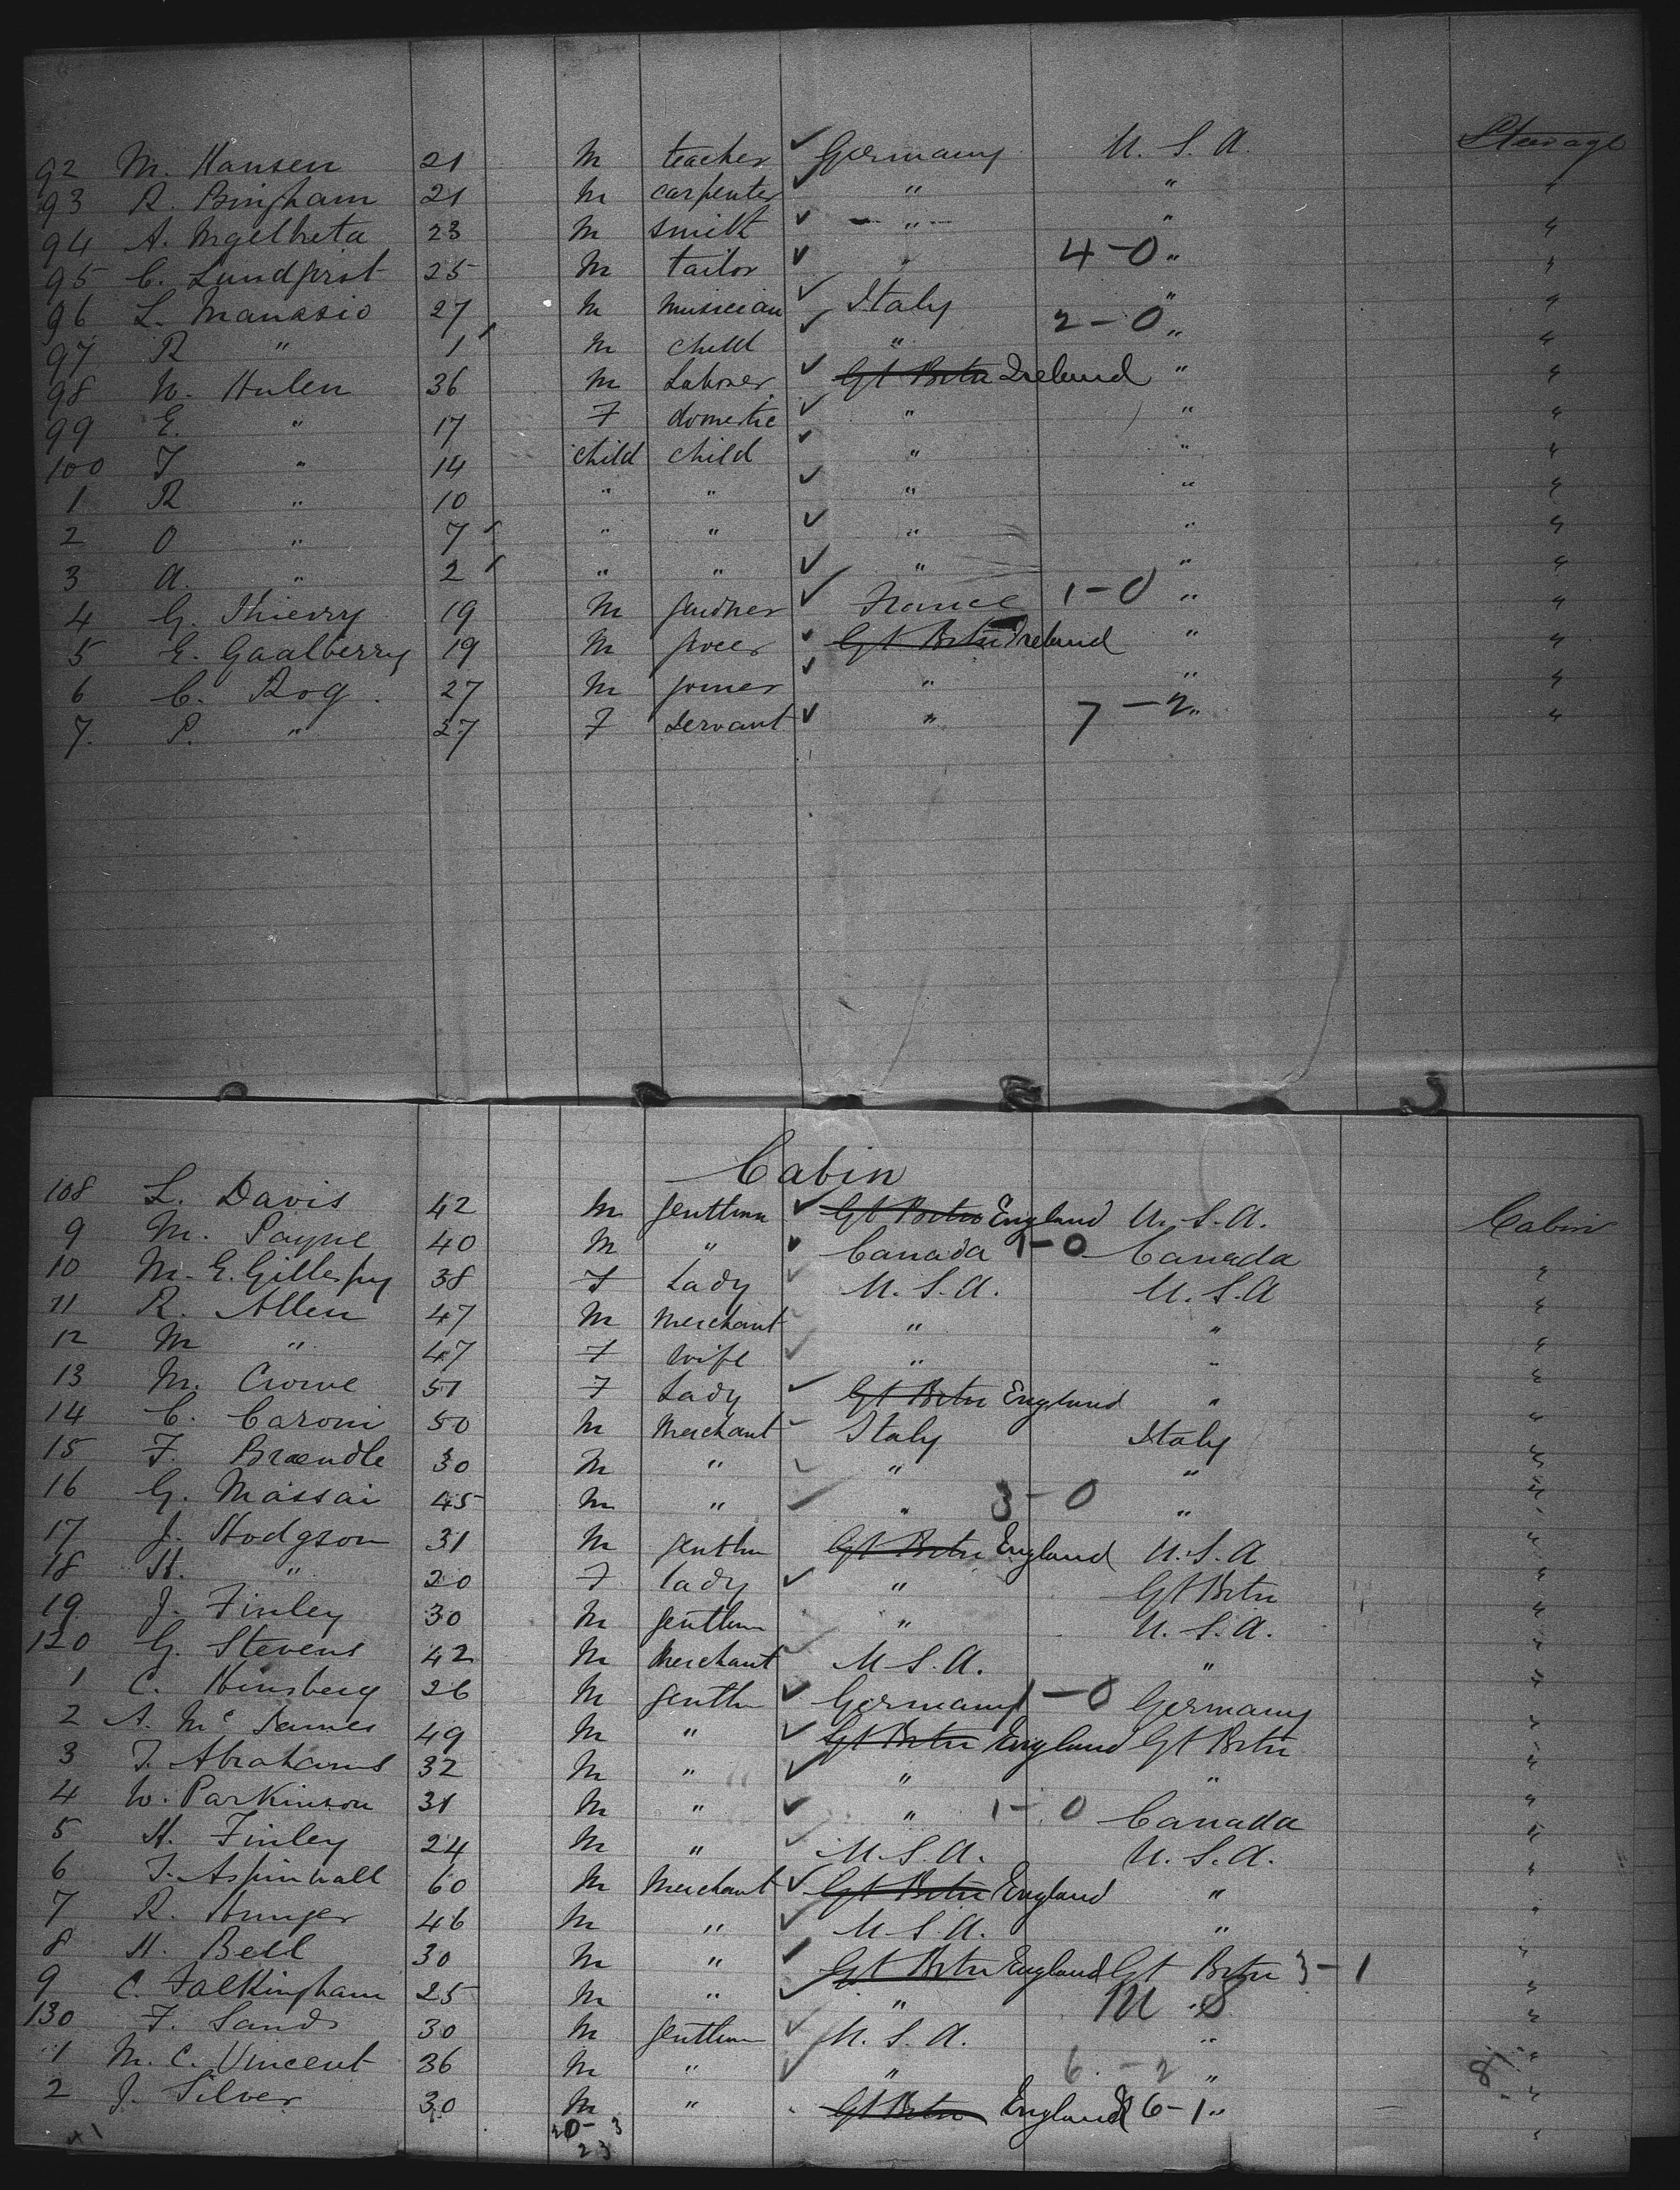 92 M. Hansen 21 M teacher ✓ Germany U.S.A. Steerage
93 R. Bingham 21 M carpenter ✓ " " "
94 A. 23 M smith ✓ " " "
95 C. 25 M tailor ✓ " 4-0 " "
96 L. 27 M musician ✓ Italy " "
97 R " 1 M child ✓ " 2-0 " "
98 W. Hulen 36 M Laborer ✓ Gt Britn Ireland " "
99 E. " 17 F domestic ✓ " " "
100 T " 14 child child ✓ " " "
1 R " 10 " " ✓ " " "
2 O " 7 " " ✓ " " "
3 A. " 2 " " ✓ " " "
4 G. Thierry 19 M gardner ✓ France 1-0 " "
5 E. Gaalberry 19 M grocer ✓ Gt Britn Ireland " "
6 C. Rog 27 M joiner ✓ " " "
7. P. " 27 F Servant ✓ " 7-2 " "
Cabin
108 L. Davis 42 M gentlman ✓ Gt Britn England U.S.A. Cabin
9 M. Payne 40 M " ✓ Canada 1-0 Canada "
10 M. E. Gillespy 38 F Lady ✓ U.S.A. U.S.A "
11 R. Allen 47 M Merchant ✓ " " "
12 M " 47 F Wife ✓ " " "
13 M. Crowe 51 F Lady ✓ Gt Britn England " "
14 C. Caroni 50 M Merchant ✓ Italy Italy "
15 F. Braendle 30 M " ✓ " " "
16 G. Massai 45 M " ✓ " 3-0 " "
17 J. Hodgson 31 M gentlm Gt Britn England U.S.A "
18 H. " 20 F lady ✓ " Gt Britn "
19 J. Finley 30 M gentlm " U.S.A. "
120 G. Stevens 42 M Merchant ✓ U.S.A. " "
1 C. Hinsberg 26 M gentlm ✓ Germany 1-0 Germany "
2 A. Mc James 49 M " ✓ Gt Britn England Gt Britn "
3 T. Abrahams 32 M " ✓ " " "
4 W. Parkinson 31 M " ✓ " 1-0 Canada "
5 H. Finley 24 M " ✓ U.S.A. U.S.A. "
6 T. Aspinwall 60 M Merchant ✓ Gt Britn England " "
7 R. 46 M " ✓ U.S.A. " "
8 H. Bell 30 M " ✓ Gt Britn England Gt Britn 3-1 "
9 C. Falkingham 25 M " ✓ " U.S "
130 F. Sands 30 M gentlm ✓ U.S.A. " "
1 M. C. Vincent 36 M " ✓ " 6-2 " "
2 J. Silver 30 M " Gt Britn England 6-1 " "
20-3
23